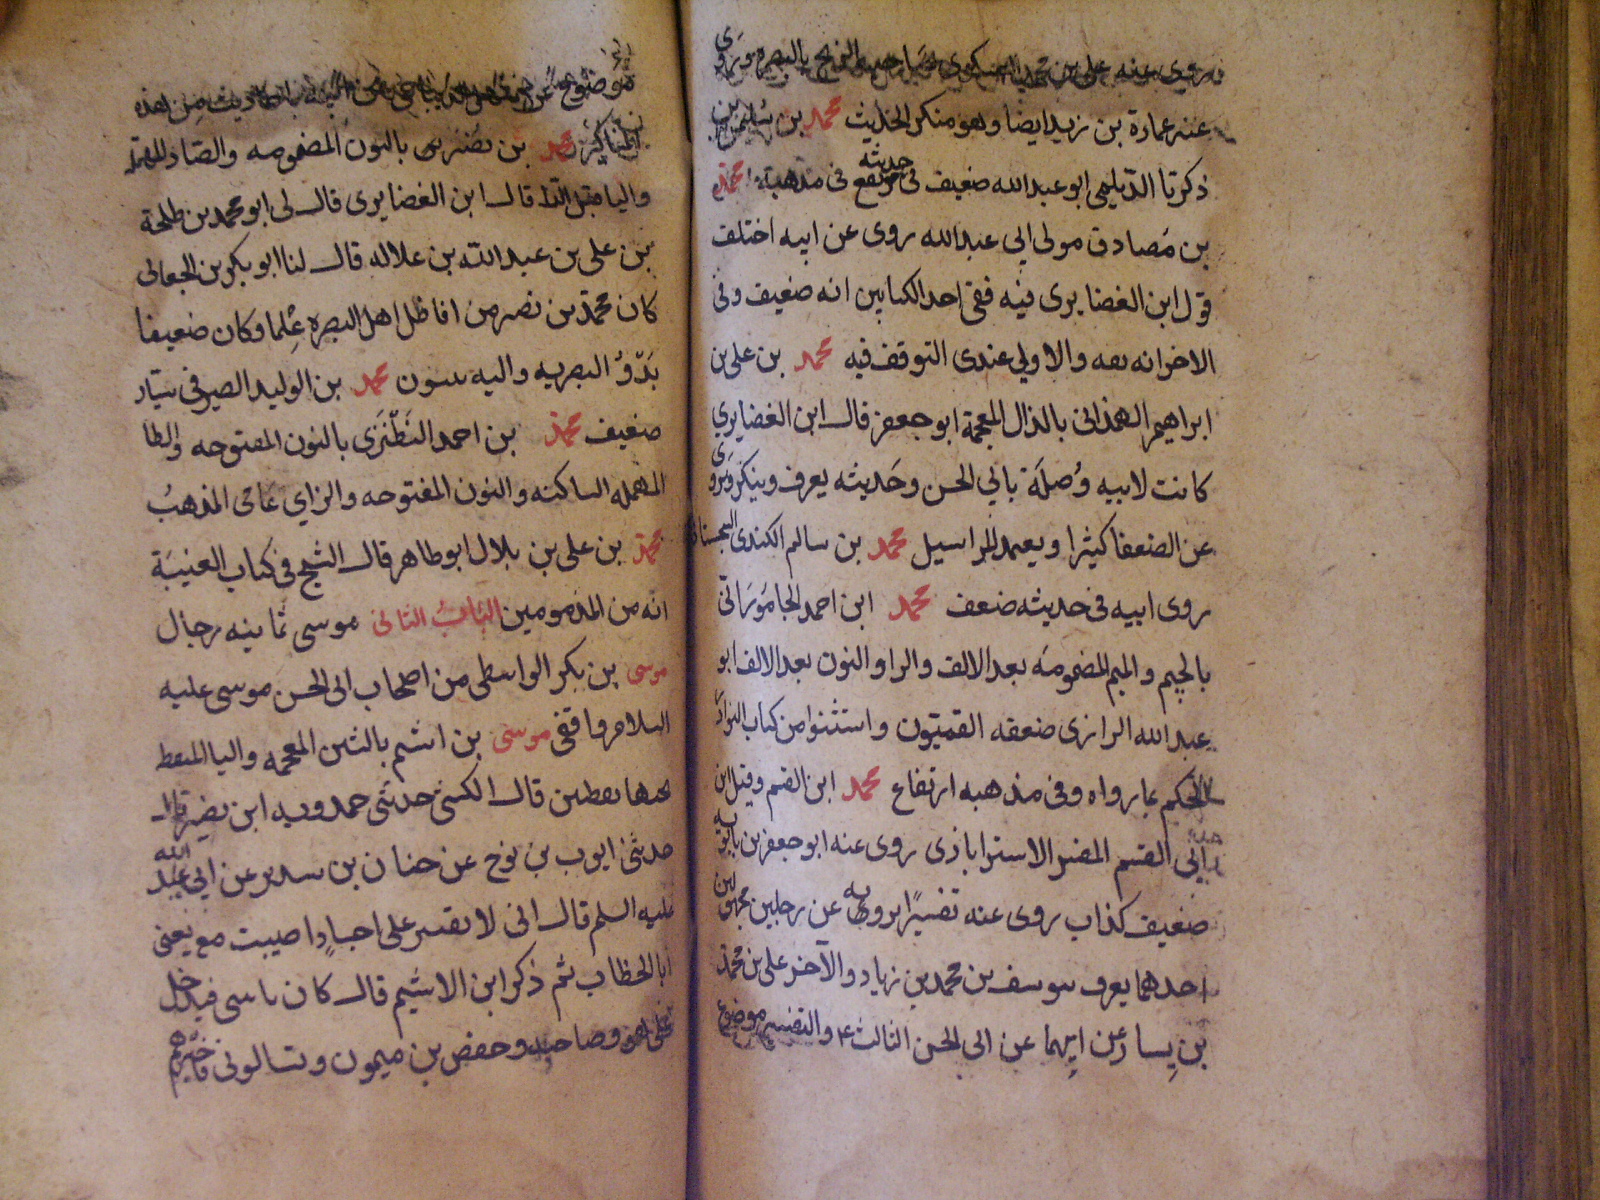 روى عنه على بن محمد العسكرى صاحب الزنج بالبصره وروى
عنه عمارة بن زيد ايضا وهو منكر الحديث محمد بن سليمن بن
ذكريا الديلمى ابو عبد الله ضعيف فى حديثه مرتفع فى مذهبه محمد
بن مصادق مولى ابى عبد الله روى عن ابيه اختلف
قول ابن الغضايرى فيه ففى احد الكتابين انه ضعيف وفى
الاخر انه ثقه والاولى عندى التوقف فيه محمد بن على بن
ابراهيم الهمذانى بالذال المعجمة ابو جعفر قال ابن الغضايرى
كانت لابيه وُصلَة بابى الحسن وحَديثه يعرف وينكر ويروى
عن الضعفا كثيرا ويعتمد المراسيل محمد بن سالم الكندى السجستانى
روى ابيه فى حديثه ضعف محمد ابن احمد الجامورانى
بالجيم والميم المضمومه بعد الالف والرا والنون بعد الالف ابو
عبد الله الرازى ضعفه القميون واستثنوا من كتاب النوادر
الحكم بما رواه وفى مذهبه ارتفاع محمد ابن القسم وقيل ابن
ابى القسم المفسر الاستراباذى روى عنه ابو جعفر بن بابويه
ضعيف كذاب روى عنه تفسيرًا يرويه عن رجلين مجهولين
احدهما يعرف بيوسف بن محمد بن زياد والآخر على بن محمد
بن يسار عن ابيهما عن ابى الحسن الثالث ع والتفسير موضوع
موضوع عن باحاديث من هذه
المناكير محمد بن نصيرى بالنون المضمومه والصاد المهمله
واليا قبل الرا قال ابن الغضايرى قال لى ابو محمد بن طلحة
بن على بن عبد الله بن علاله قال لنا ابو بكر بن الجعابى
كان محمد بن نصير من افاضل اهل البصره عِلما وكان ضعيفا
بَدْوُ النصريه واليه ينسبون محمد بن الوليد الصيرفى شباب
ضعيف محمد بن احمد النَطَنْزى بالنون المفتوحه والطا
المهمله الساكنه والنون المفتوحه والزاي عامى المذهبُ
محمد بن على بن بلال ابو طاهر قال الشيخ فى كتاب الغيبَة
انه من المذمومين البَابُ الثانى موسى ثمانيه رجال
موسى بن بكر الواسطى من اصحاب ابى الحسن موسى عليه
السلام واقفى موسى بن اشيم بالشين المعجمه واليا المنقط
تحتها نقطين قال الكشى حدثنى حمدويه ابن نصير قال
حدثنى ايوب بن نوح عن حنان بن سدير عن ابى عبد الله
عليه السلم قال انى لا نفس على اجسادٍ اصيبت مع يعنى
ابا الخطاب ثم ذكر ابن الاشيم قال كان ياتينى فيدخل
على هو وصاحبه وحفص بن ميمون ويسالونى فاخبرهم